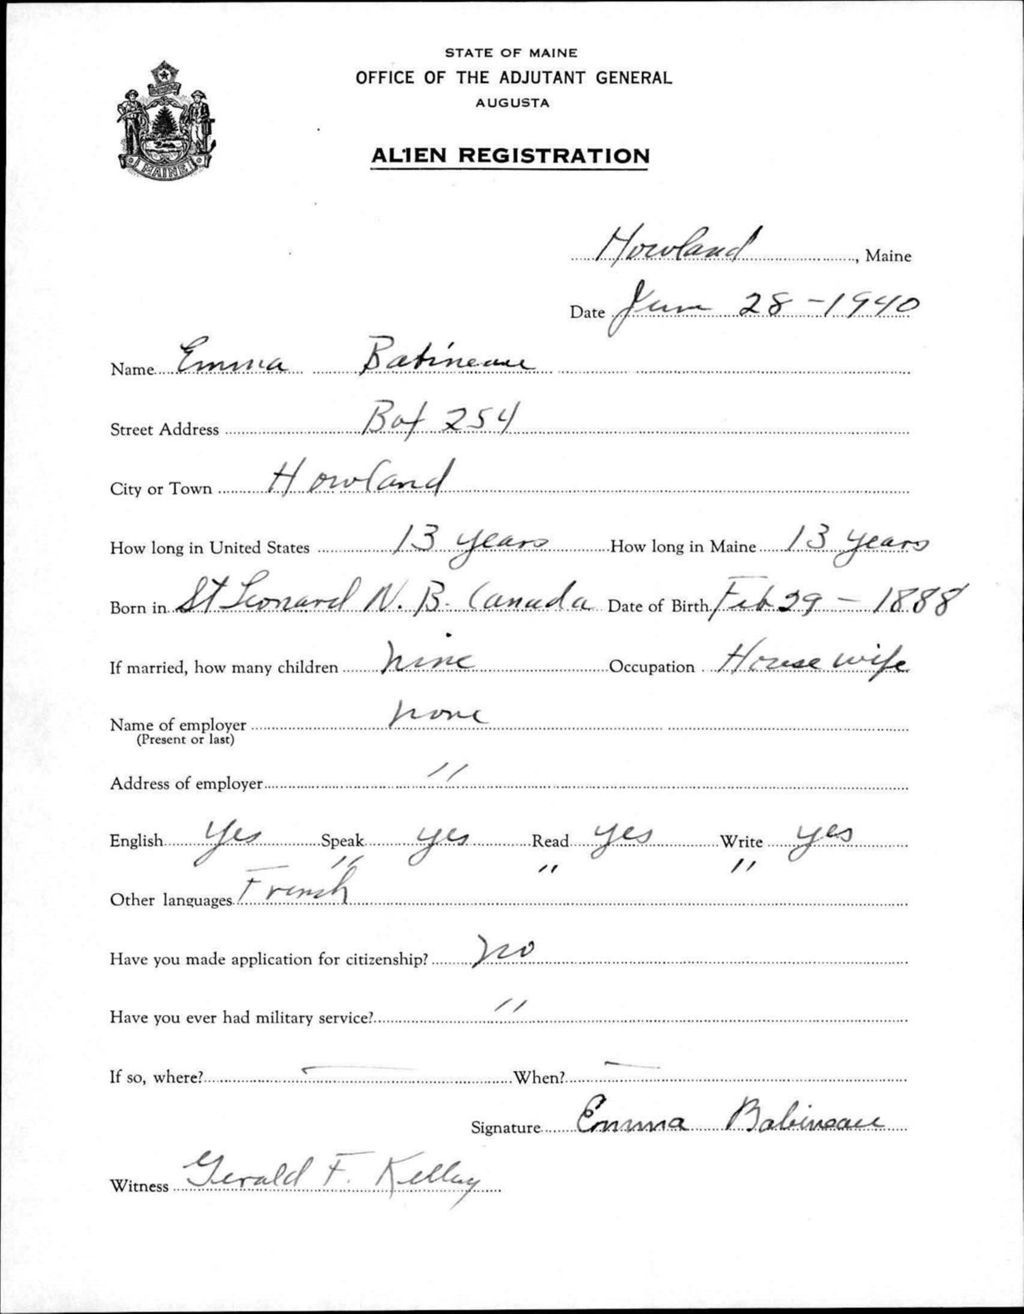 STATE OF MAINE
OFFICE OF THE ADJUTANT GENERAL
AUGUSTA
ALIEN REGISTRATION
MAINE
Howland, Maine
Date June 28 - 1940
Name Emma Babineau
Street Address Box 254
City or Town Howland
How long in United States 13 years How long in Maine 13 years
Born in St Leonard N. B. Canada Date of Birth Feb 29 - 1888
If married, how many children nine Occupation House wife
Name of employer none
(Present or last)
Address of employer "
English Yes Speak yes Read yes Write yes
" " "
Other languages French
Have you made application for citizenship? no
Have you ever had military service? "
If so, where? — When? —
Signature Emma Babineau
Witness Gerald F. Kelley